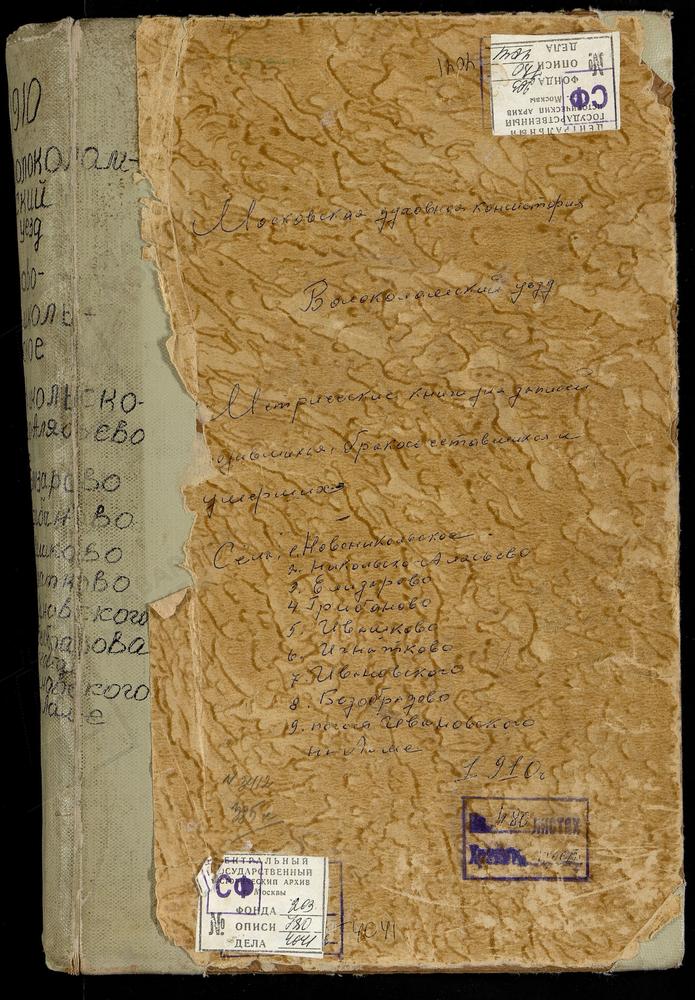 910
олоколам-
ский
уезд
ово-
коль-
кое
кольско-
Алябьево
изарово
ново
шково
атково
новского
бразова
новского
4041
ЦЕНТРАЛЬНЫЙ
ГОСУДАРСТВЕННЫЙ
ИСТОРИЧЕСКИЙ АРХИВ
г. Москвы
СФ
ФОНДА 203
№ ОПИСИ 780
ДЕЛА 4041
Московская духовная консистория
Волоколамский уезд
Метрические книги для записей
родившихся, бракосочетавшихся и
умерших
Села: 1. Новоникольское
2. Никольско-Алябьево
3. Елизарово
4. Грибаново
5. Ивашково
6. Игнатково
7. Ивановского
8. Безобразово
9. Ивановского
на Ламе
1910г
N 2412
385
На 284 листах
ЦЕНТРАЛЬНЫЙ
ГОСУДАРСТВЕННЫЙ
ИСТОРИЧЕСКИЙ АРХИВ
г. Москвы
СФ
ФОНДА 203
№ ОПИСИ 780
ДЕЛА 4041
4041